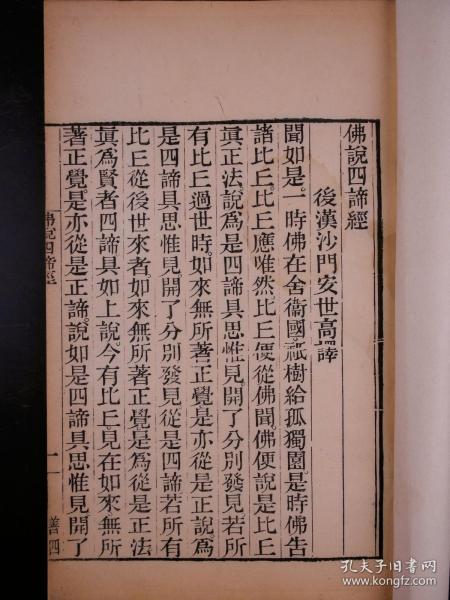 佛說四諦經
後漢沙門安世高譯
聞如是。一時佛在舍衞國祇樹給孤獨園。是時佛告
諸比丘。比丘應唯然。比丘便從佛聞。佛便說是比丘
眞正法。說爲是四諦具思惟見。開了分別發見。若所
有比丘過世時。如來無所著正覺。是亦從是正說爲
是四諦具思惟見開了分別發見。從是四諦。若所有
比丘從後世來者。如來無所著正覺。是爲從是正法
眞爲賢者四諦具如上說。今有比丘。見在如來無所
著正覺。是亦從是正諦。說如是四諦具思惟見開了
佛說四諦經
一
善四
孔夫子旧书网
www.kongfz.com